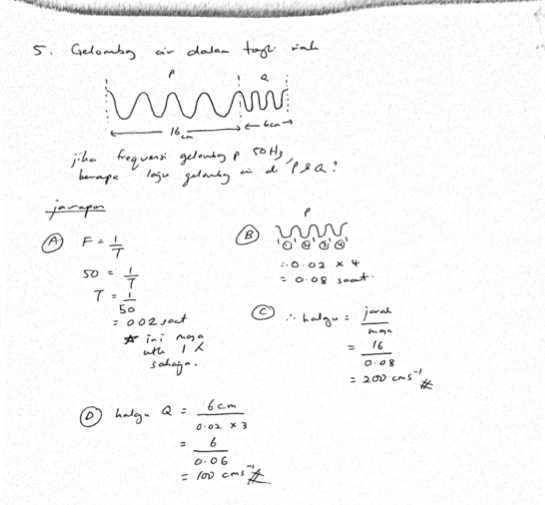 5. Gelombang air dalam tangki riak
P Q
16 cm 6cm
jika frequensi gelombang P 50 Hz,
berapa laju gelombang air di P & Q?
jawapan
(A) F = 1/T
50 = 1/T
T = 1/50
= 0.02 saat
* ini masa
utk 1 λ
sahaja.
(B) P
1 2 3 4
∴ 0.02 × 4
= 0.08 saat.
(C) ∴ halaju = jarak/masa
= 16/0.08
= 200 cms⁻¹ #
(D) halaju Q = 6cm/0.02 × 3
= 6/0.06
= 100 cms⁻¹ #